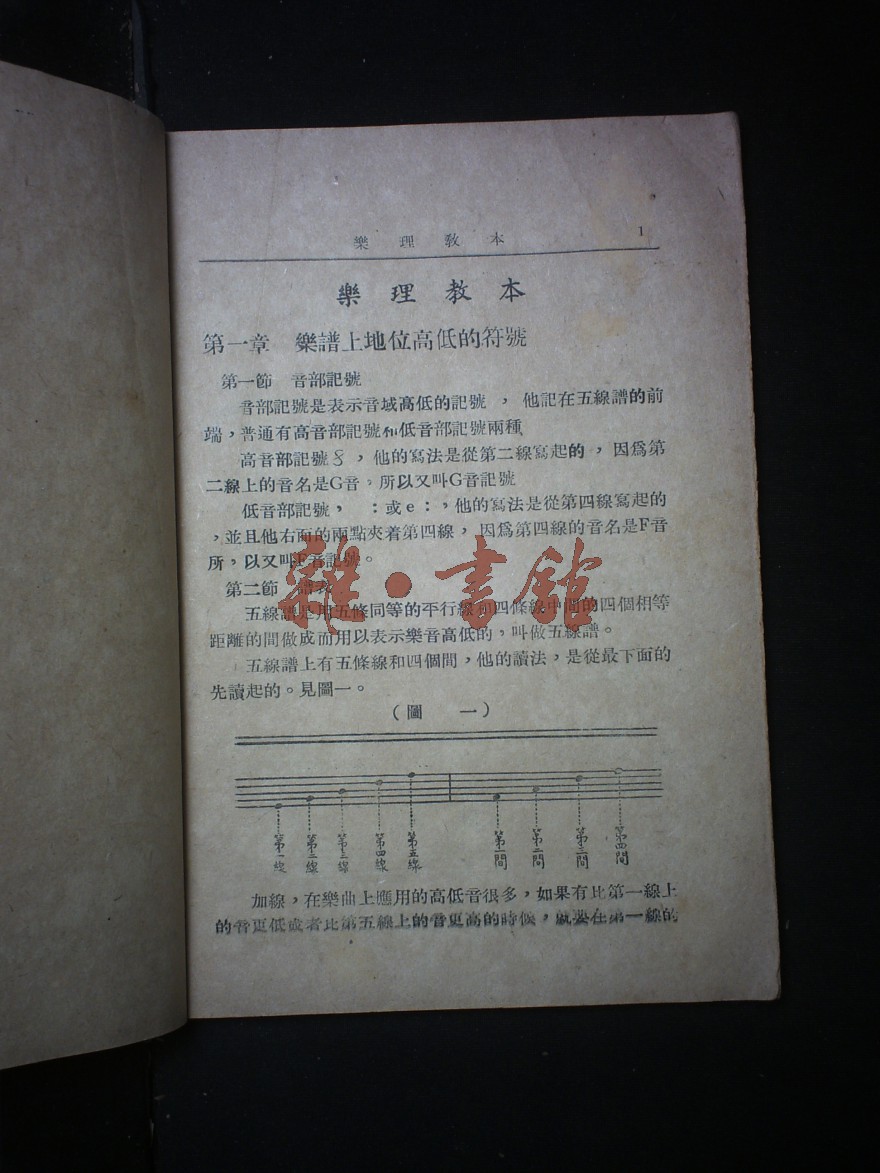 樂理教本 1
樂理教本
第一章 樂譜上地位高低的符號
第一節 音部記號
音部記號是表示音域高低的記號，他記在五線譜的前
端，普通有高音部記號和低音部記號兩種
高音部記號8，他的寫法是從第二線寫起的，因爲第
二線上的音名是G音。所以又叫G音記號
低音部記號， ：或e：，他的寫法是從第四線寫起的
，並且他右面的兩點夾着第四線，因爲第四線的音名是F音
所，以又叫F音記號。
第二節 譜表
五線譜是用五條同等的平行線和四條線中間的四個相等
距離的間做成而用以表示樂音高低的，叫做五線譜。
五線譜上有五條線和四個間，他的讀法，是從最下面的
先讀起的。見圖一。
（圖 一）
第一線
第二線
第三線
第四線
第五線
第一間
第二間
第三間
第四間
加線，在樂曲上應用的高低音很多，如果有比第一線上
的音更低或者比第五線上的音更高的時候，就要在第一線的
雜·書館